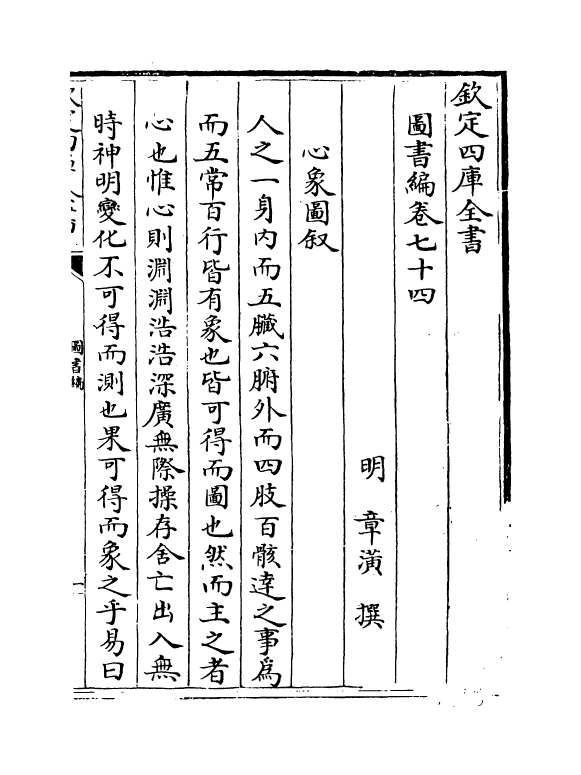 欽定四庫全書
圖書編卷七十四
明 章潢 撰
心象圖叙
人之一身内而五臟六腑外而四肢百骸達之事爲
而五常百行皆有象也皆可得而圖也然而主之者
心也惟心則淵淵浩浩深廣無際操存舍亡出入無
時神明變化不可得而測也果可得而象之乎易曰
圖書編